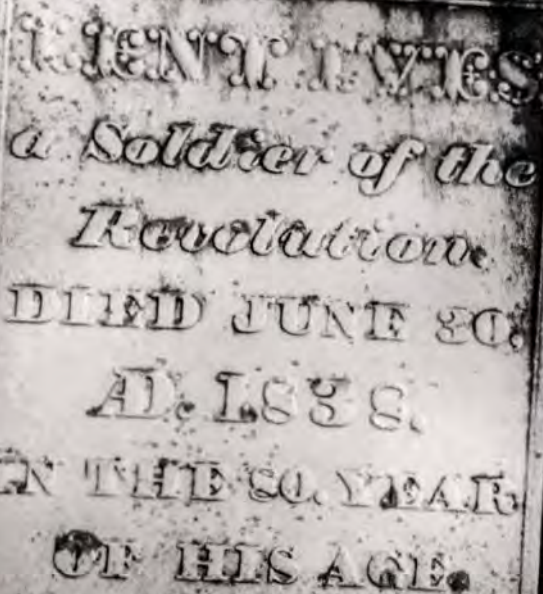 LENT IVES
a Soldier of the
Revolution.
DIED JUNE 30.
AD. 1838.
IN THE 80. YEAR
OF HIS AGE.